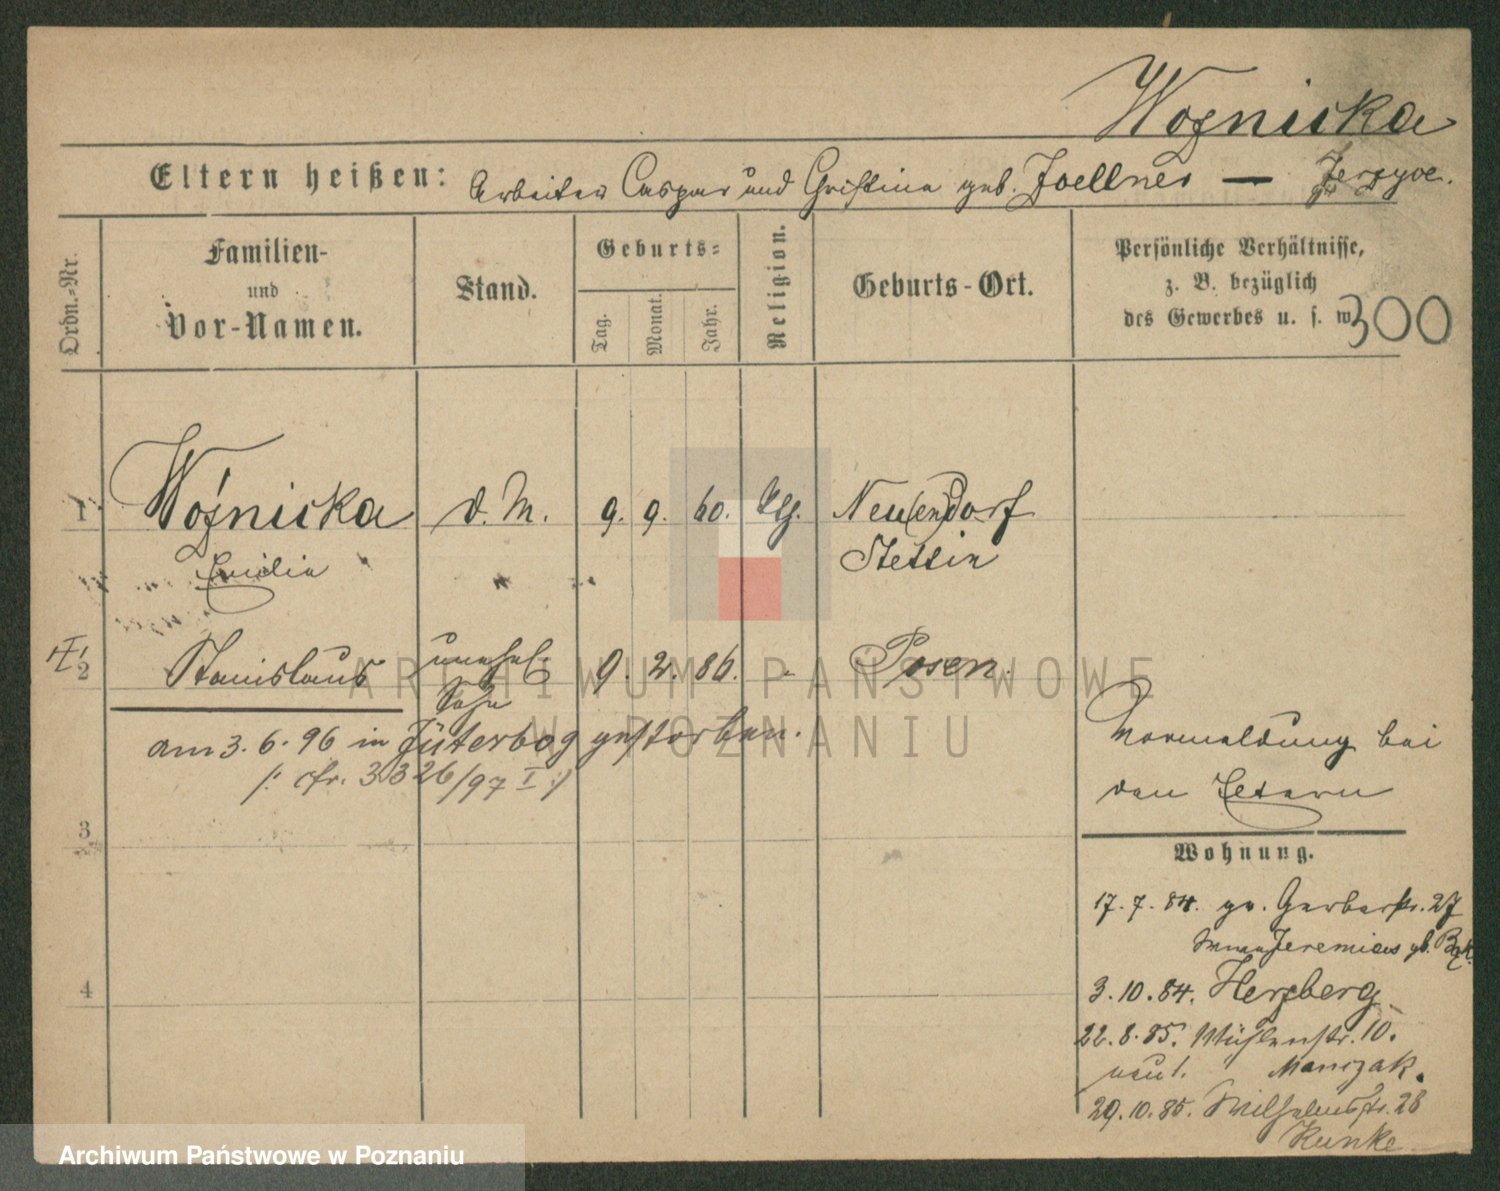 Woznicka
Eltern heißen: Arbeiter Caspar und Christine geb. Zoellner — Jerzyce.
Ordn.-Nr.
Familien-
und
Vor-Namen.
Stand.
Geburts-
Tag.
Monat.
Jahr.
Religion.
Geburts-Ort.
Persönliche Verhältnisse,
z. B. bezüglich
des Gewerbes u. s. w.
300
1 Woźnicka d. M. 9. 9. 60. Neu(en)dorf
Emilie Stettin
2 Stanislaus unehel. 9. 2. 86. Posen.
Sohn
am 3. 6. 96 in Jüterbog gestorben.
/: cfr. 3326/97 I :/
bei
den
3
Wohnung.
17. 7. 84. Gerberstr. 27
Jeremias
4
3. 10. 84. Herzberg
22. 8. 85. Mühlenstr. 10.
29. 10. 85. Wilhelmstr. 28
Kunke
ARCHIWUM PAŃSTWOWE
W POZNANIU
Archiwum Państwowe w Poznaniu